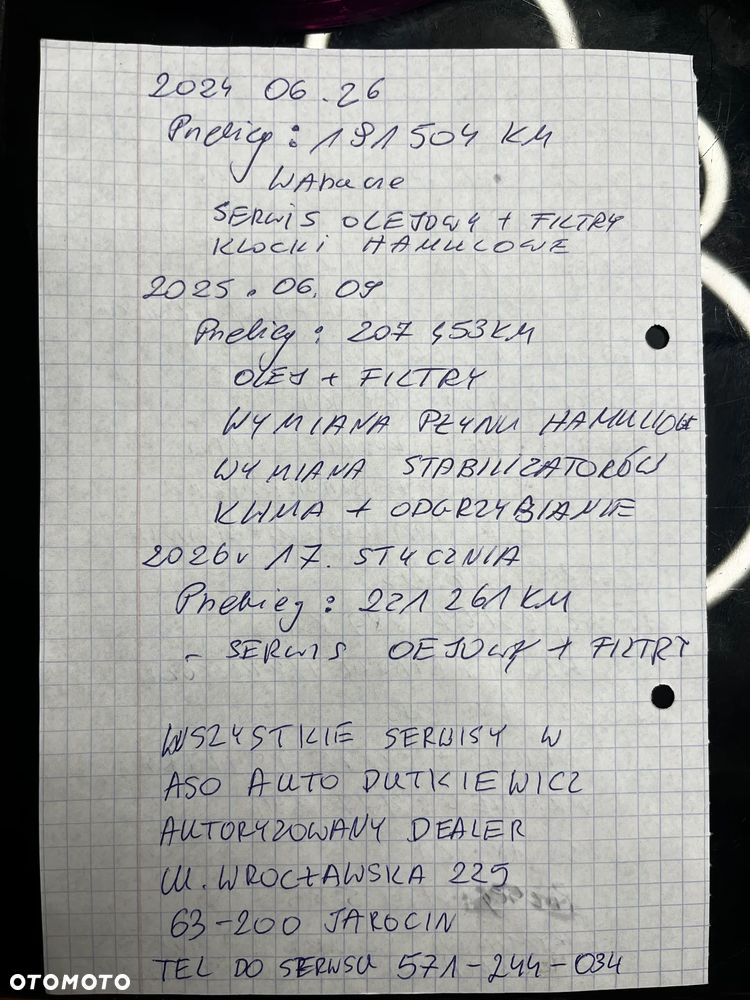 2024 06.26
Przebieg: 191504 KM
SERWIS OLEJOWY + FILTRY
KLOCKI HAMULCOWE
2025.06.09
Przebieg: 207 453KM
OLEJ + FILTRY
WYMIANA PŁYNU HAMULCOW
WYMIANA STABILIZATORÓW
KLIMA + ODGRZYBIANIE
2026r 17. STYCZNIA
Przebieg: 221 261 KM
- SERWIS OEJOWY + FILTRY
WSZYSTKIE SERWISY W
ASO AUTO DUTKIEWICZ
AUTORYZOWANY DEALER
UL. WROCŁAWSKA 225
63-200 JAROCIN
TEL DO SERWSU 571-244-034
OTOMOTO